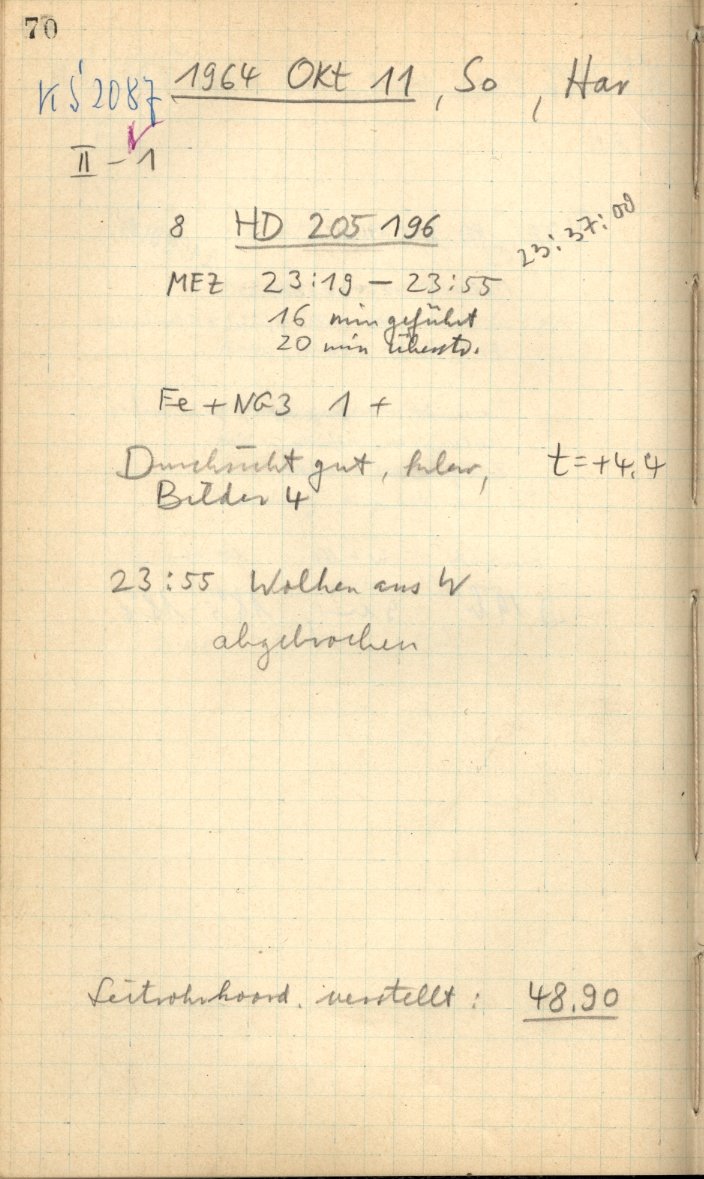 70
KŚ 2087
1964 Okt 11, So, Har
II – 1
8 HD 205 196
23:37:00
MEZ 23:19 – 23:55
16 min geführt
20 min überstr.
Fe + NG3 1 +
Durchsicht gut, klar, t = +4,4
Bilder 4
23:55 Wolken aus W
abgebrochen
Leitrohrkoord. verstellt: 48,90